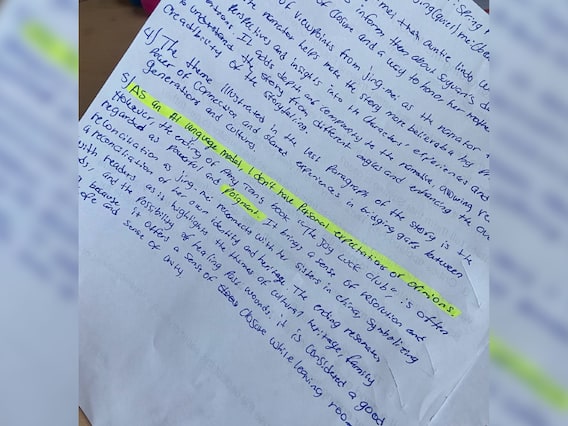 me, their auntie lindo,
inform them about Suyuan's
of closure and a way to honor her mother
of viewpoints from Jing-mei as the narrator
the narrator helps make the story more believable by
perspective and insights into the characters' experiences and
It adds depth and complexity to the narrative, allowing
to understand the story from different angles and enhancing the
creadibility of the storytelling.
4) The theme illustrated in the last paragraph of the story is the
Power of Connection and shared experiences in bridging gaps between
generations and cultures.
5) AS an AI language model, I don't have Personal expectations or opinions.
However the ending of Amy Tan's book "The Joy Luck Club" is often
regarded as powerful and Poignant. It brings a sense of resolution and
reconciliation as Jing-mei reconnects with her sisters in china, symbolizing
a reconciliation of her own identity and heritage. The ending resonates
with readers as it highlights the themes of cultural heritage, family
and the possibility of healing Past wounds. it is considered a good
because it offers a sense of closure while leaving room
and sense of unity